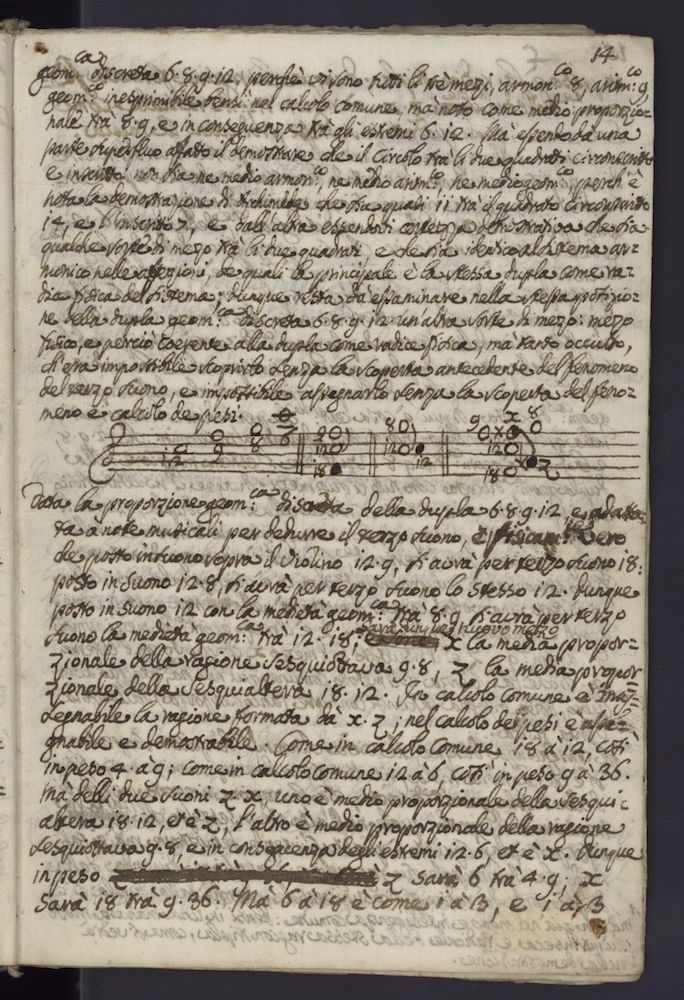 14
geom:ca discreta 6. 8. 9. 12, perchè vi sono tutti li trè mezi, armon:co 8, aritm:co 9,
geom:co inesprimibile bensì nel calcolo comune, mà noto come medio proporzio=
nale trà 8. 9, e in conseguenza trà gli estremi 6. 12. Mà essendo da una
parte superfluo affatto il demostrare che il Circolo trà li due quadrati circonscritto
e inscritto non sia ne medio armon:co, ne medio aritm:co, ne medio geom:co, perch'è
nota la demostrazione di Archimede che sia quasi 11 trà il quadrato circonscritto
14, e l'inscritto 7, e dall'altra essendovi certezza demostrativa che sia
qualche sorte di mezo trà li due quadrati, e che sia identico al sistema ar=
monico nelle affezioni, de quali la principale è la stessa dupla come ra=
dice fisica del sistema; dunque resta da essaminare nella stessa posizio=
ne della dupla geom:ca discreta 6. 8. 9. 12 un'altra sorte di mezo: mezo
fisico, e perciò coerente alla dupla come radice fisica, mà tanto occulto,
ch'era impossibile scoprirlo senza la scoperta antecedente del fenomeno
del terzo suono, e impossibile assegnarlo senza la scoperta del feno=
meno e calcolo de pesi.
12 9 8 6 9 12 18 8 12 12 9 x 8 12 18 z
Data la proporzione geom:ca discreta della dupla 6. 8. 9. 12 e adatta=
ta à note musicali per dedurre il terzo suono, è fisicam:te vero
che posto in suono sopra il Violino 12. 9, si avrà per terzo suono 18:
posto in suono 12. 8, si avrà per terzo suono lo stesso 12. Dunque
posto in suono 12 con la medietà geom:ca trà 8. 9, si avrà per terzo
suono la medietà geom:ca trà 12. 18; sarà dunque nuovo mezo x la media propor=
zionale della ragione sesquiottava 9. 8, z la media propor
zionale della sesquialtera 18. 12. In calcolo comune è inas=
segnabile la ragione formata da x. z; nel calcolo dei pesi è asse=
gnabile e demostrabile. Come in calcolo comune 18 à 12, così
in peso 4. à 9; come in calcolo comune 12 à 6, così in peso 9 à 36.
Mà delli due suoni z. x, uno è medio proporzionale della sesqui=
altera 18. 12, et è z, l'altro è medio proporzionale della ragione
sesquiottava 9. 8, e in conseguenza degli estremi 12. 6, et è x. Dunque
in peso z sarà 6 trà 4. 9; x
sarà 18 trà 9. 36. Mà 6 à 18 è come 1 à 3, e 1 à 3